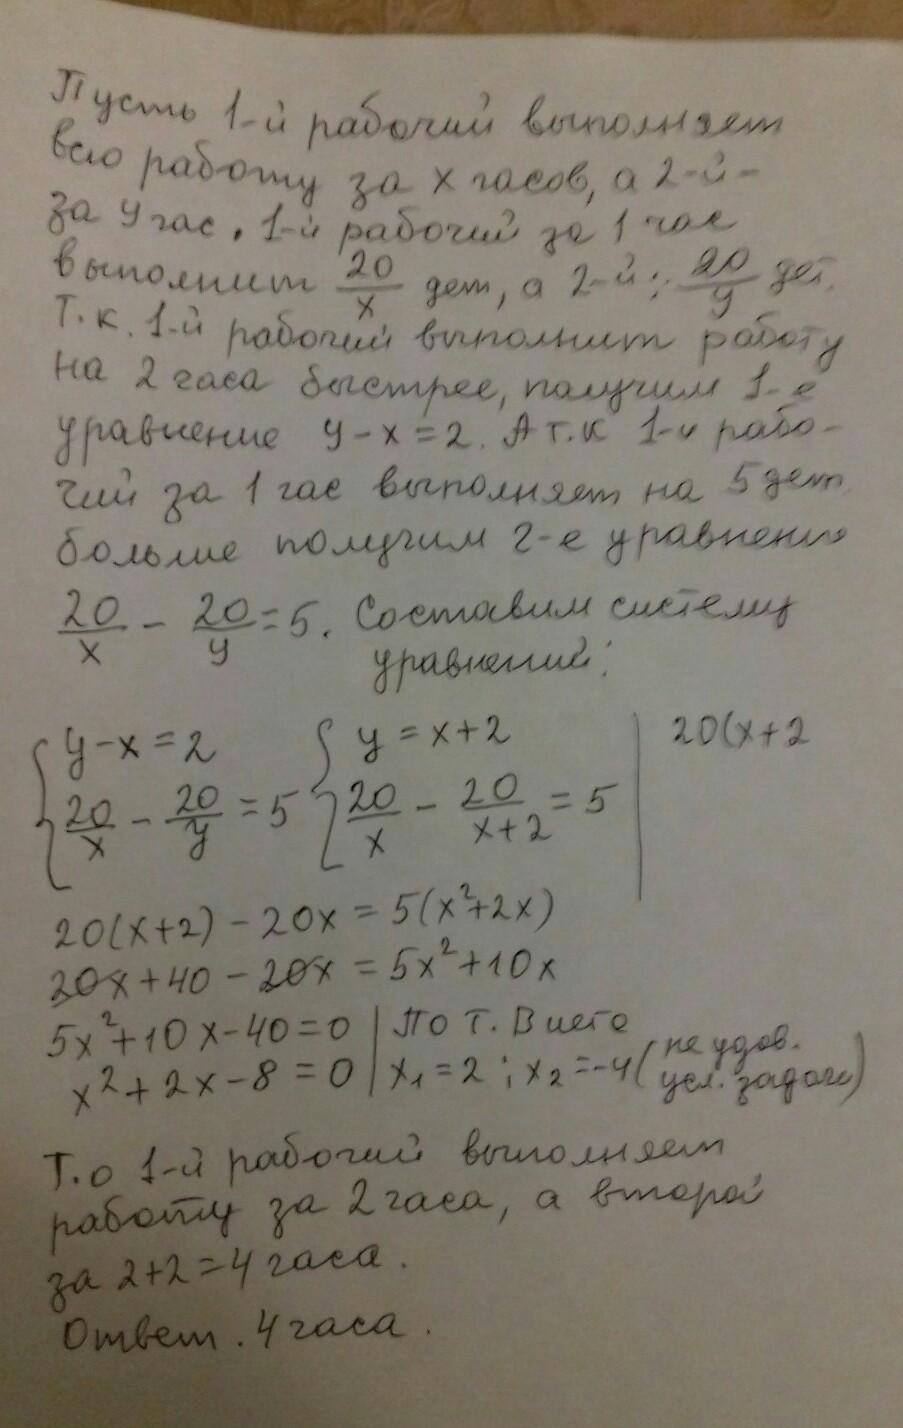 Пусть 1-й рабочий выполняет
всю работу за x часов, а 2-й -
за y час. 1-й рабочий за 1 час
выполнит 20/x дет, а 2-й: 20/y дет.
Т.к. 1-й рабочий выполнит работу
на 2 часа быстрее, получим 1-е
уравнение y-x=2. А т.к 1-й рабо-
чий за 1 час выполняет на 5 дет
больше получим 2-е уравнение
20/x - 20/y = 5. Составим систему
уравнений:
{ y-x=2 { y=x+2 | 20(x+2
20/x - 20/y = 5 20/x - 20/(x+2) = 5
20(x+2) - 20x = 5(x²+2x)
20x+40-20x = 5x²+10x
5x²+10x-40=0 | По т. Виета
x²+2x-8=0 | x₁=2; x₂=-4 (не удов. усл. задачи)
Т.о 1-й рабочий выполняет
работу за 2 часа, а второй
за 2+2=4 часа.
Ответ. 4 часа.